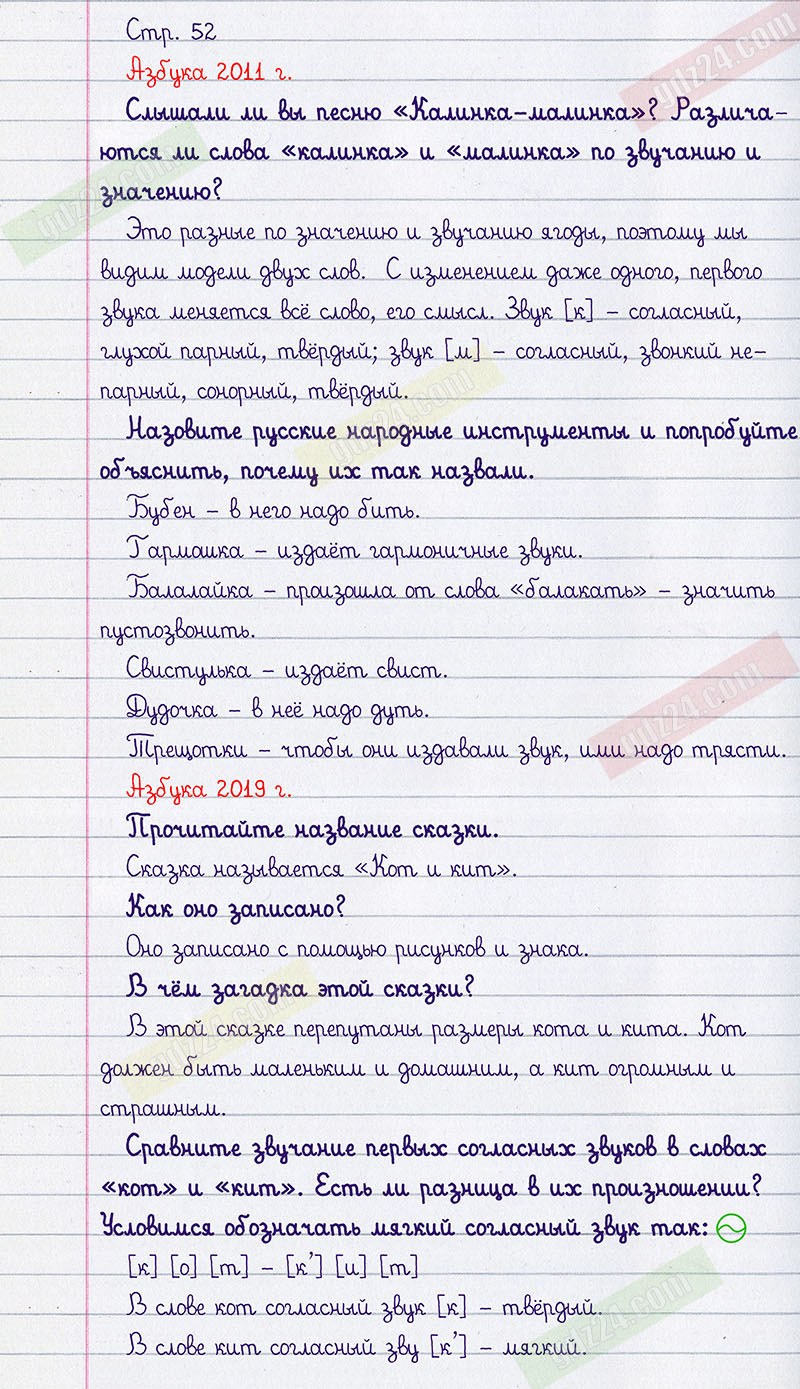 Стр. 52
Азбука 2011 г.
Слышали ли вы песню «Калинка-малинка»? Различа-
ются ли слова «калинка» и «малинка» по звучанию и
значению?
Это разные по значению и звучанию ягоды, поэтому мы
видим модели двух слов. С изменением даже одного, первого
звука меняется всё слово, его смысл. Звук [к] – согласный,
глухой парный, твёрдый; звук [м] – согласный, звонкий не-
парный, сонорный, твёрдый.
Назовите русские народные инструменты и попробуйте
объяснить, почему их так назвали.
Бубен – в него надо бить.
Гармошка – издаёт гармоничные звуки.
Балалайка – произошла от слова «балакать» – значить
пустозвонить.
Свистулька – издаёт свист.
Дудочка – в неё надо дуть.
Трещотки – чтобы они издавали звук, ими надо трясти.
Азбука 2019 г.
Прочитайте название сказки.
Сказка называется «Кот и кит».
Как оно записано?
Оно записано с помощью рисунков и знака.
В чём загадка этой сказки?
В этой сказке перепутаны размеры кота и кита. Кот
должен быть маленьким и домашним, а кит огромным и
страшным.
Сравните звучание первых согласных звуков в словах
«кот» и «кит». Есть ли разница в их произношении?
Условимся обозначать мягкий согласный звук так:
[к] [о] [т] – [к’] [и] [т]
В слове кот согласный звук [к] – твёрдый.
В слове кит согласный зву [к’] – мягкий.
ydz24.com
ydz24.com
ydz24.com
ydz24.com
ydz24.com
ydz24.com